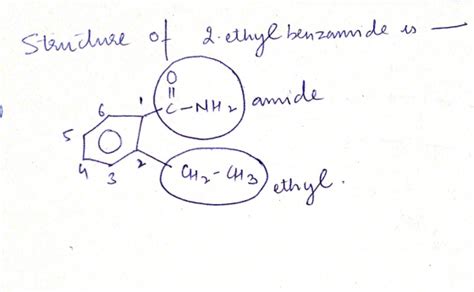 Structure of 2-ethyl benzamide is —
O
||
C-NH2 amide
1
6
5
4
3
2
CH2-CH3 ethyl.